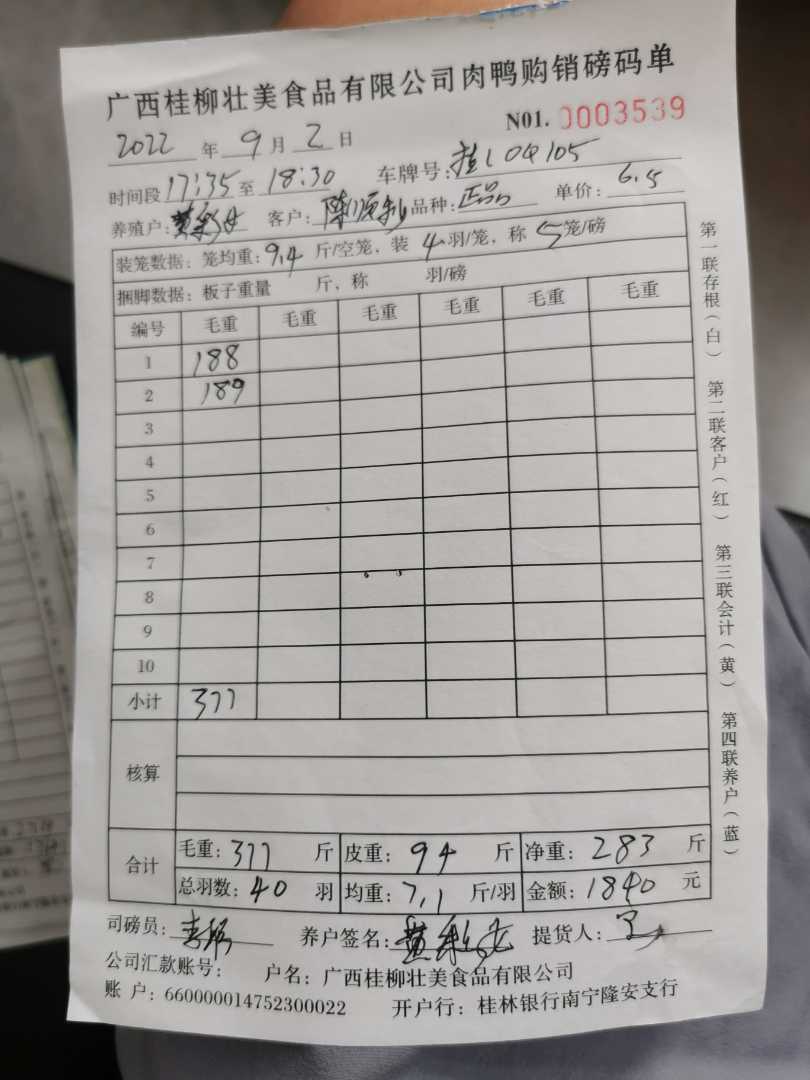 广西桂柳壮美食品有限公司肉鸭购销磅码单
2022 年 9 月 2 日 N01. 0003539
时间段 17:35 至 18:30 车牌号: 桂L04105
养殖户: 黄 客户: 陈顺利 品种: 正品 单价: 6.5
装笼数据: 笼均重: 9.4 斤/空笼, 装 4 羽/笼, 称 5 笼/磅
捆脚数据: 板子重量 斤, 称 羽/磅
编号 毛重 毛重 毛重 毛重 毛重 毛重
1 188
2 189
3
4
5
6
7
8
9
10
小计 377
核算
合计 毛重: 377 斤 皮重: 94 斤 净重: 283 斤
总羽数: 40 羽 均重: 7.1 斤/羽 金额: 1840 元
司磅员: 养户签名: 黄 提货人:
公司汇款账号: 户名: 广西桂柳壮美食品有限公司
账 户: 660000014752300022 开户行: 桂林银行南宁隆安支行
第一联存根(白) 第二联客户(红) 第三联会计(黄) 第四联养户(蓝)